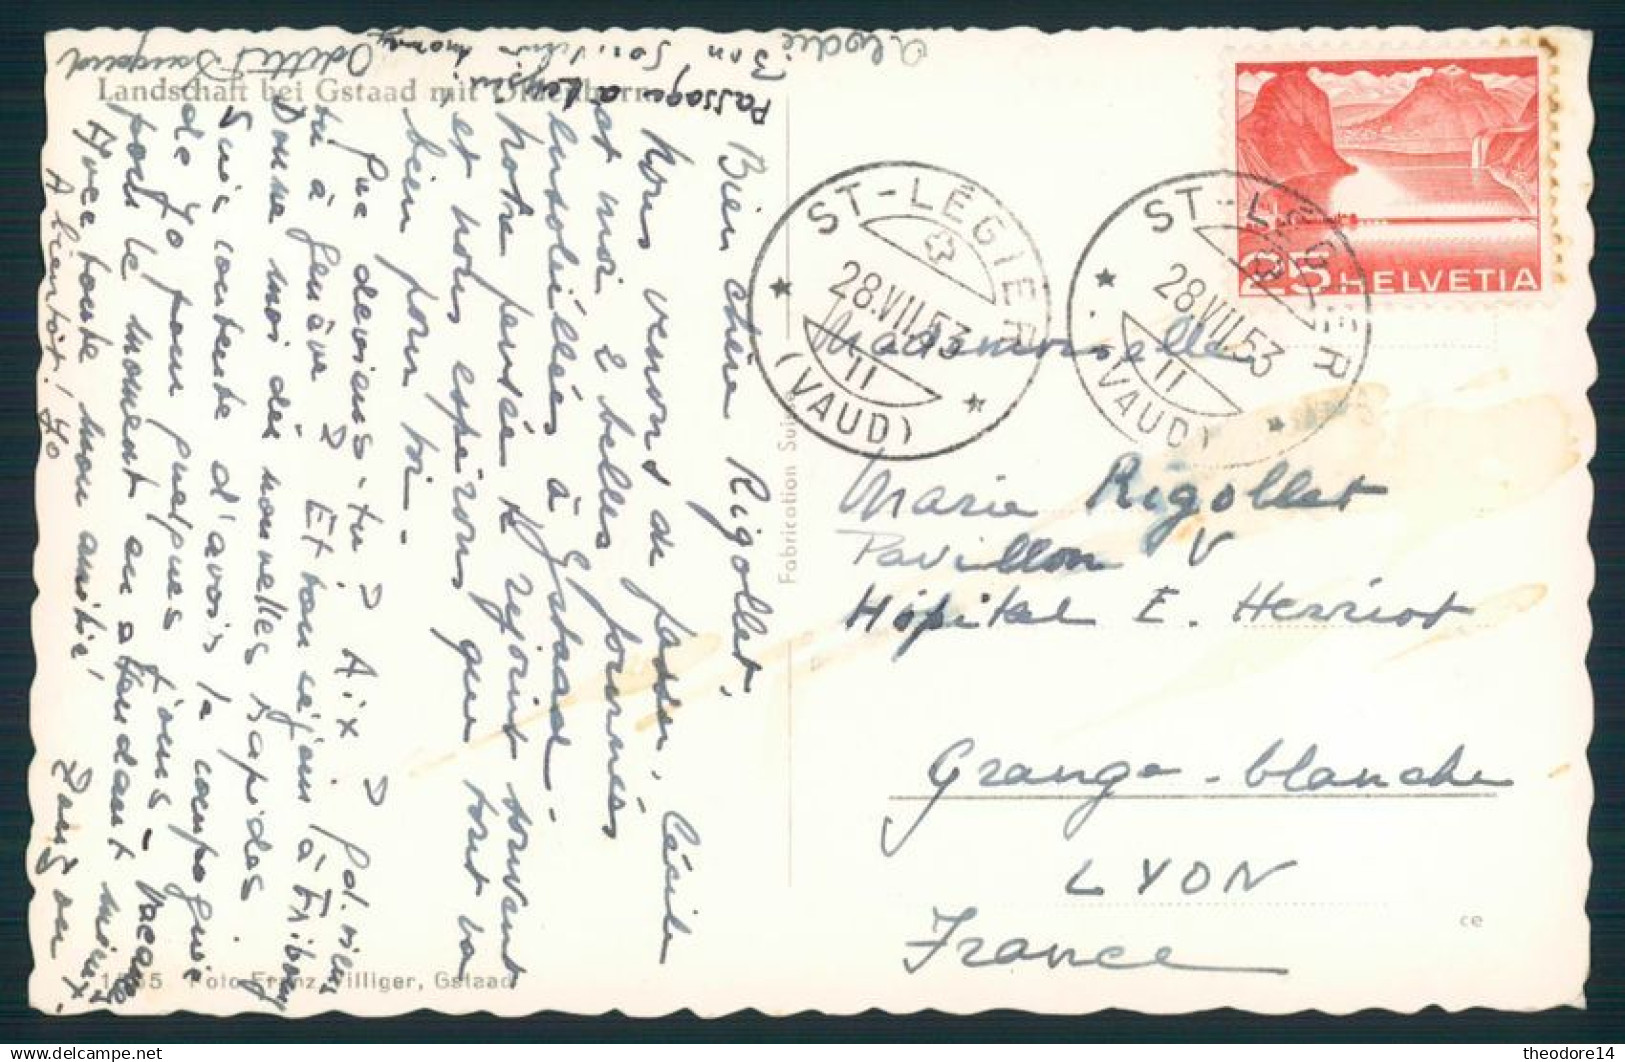 Landschaft bei Gstaad mit
Bien chère Rigollet,
Nous venons de passer, Cécile
et moi 2 belles journées
ensoleillées à Gstaad.
Notre pensée te rejoint souvent
et nous espérons que tout va
bien pour toi.
Que deviens-tu ? Aix ?
tu à Genève ? Et ton séjour à Fribourg
Donne moi des nouvelles rapides
Suis contente d'avoir la compagnie
de Yo pour quelques jours -
pour le moment en attendant
Avec toute mon amitié
A bientôt! Yo
Passage à Leysin
Odette
Fabrication Sui
Foto Franz Villiger, Gstaad
ST-LÉGIER
28.VII.53
11
(VAUD)
ST-LÉGIER
28.VII.53
11
(VAUD)
25 HELVETIA
Mademoiselle
Marie Rigollet
Pavillon V
Hôpital E. Herriot
Grange-blanche
LYON
France
ce
delcampe.net
theodore14